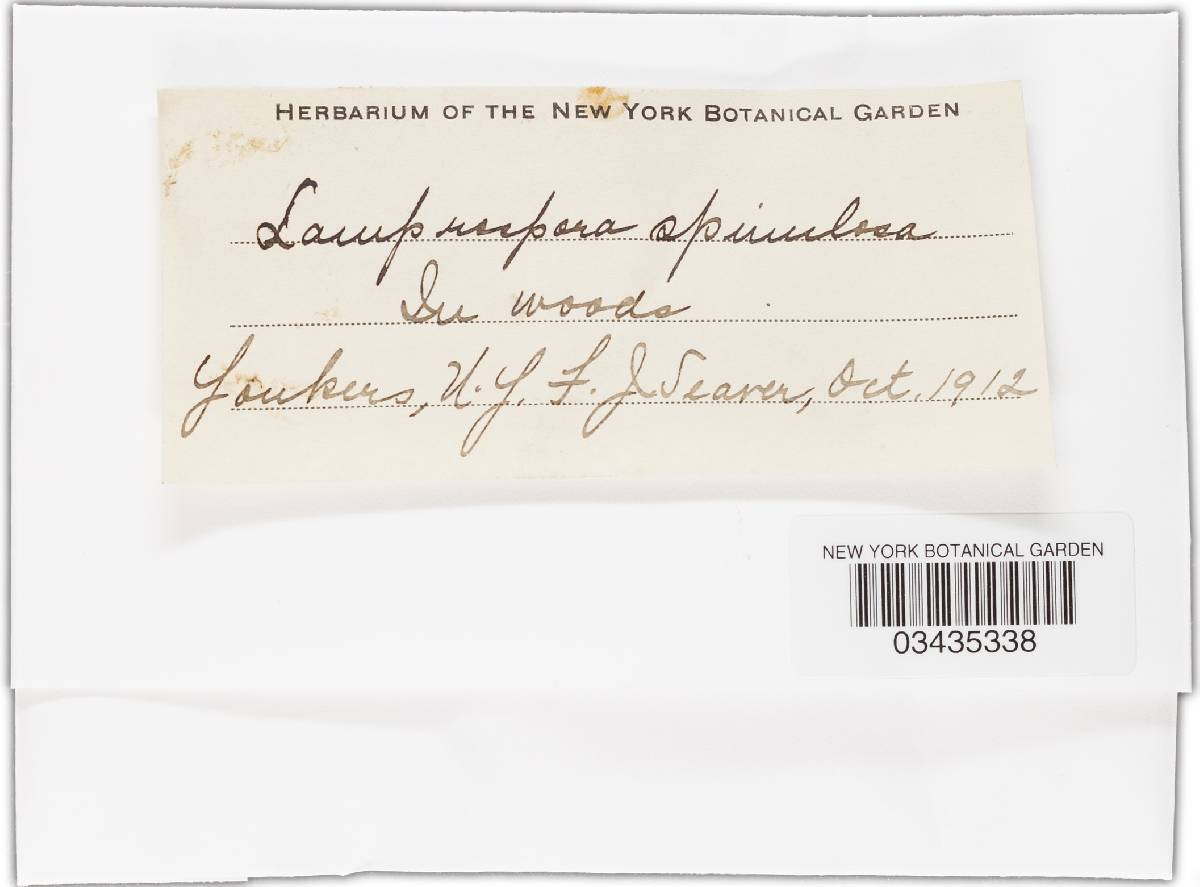 HERBARIUM OF THE NEW YORK BOTANICAL GARDEN
Lamprospora spinulosa
In woods
Yonkers, N.Y. F. J. Seaver, Oct. 1912
NEW YORK BOTANICAL GARDEN
03435338